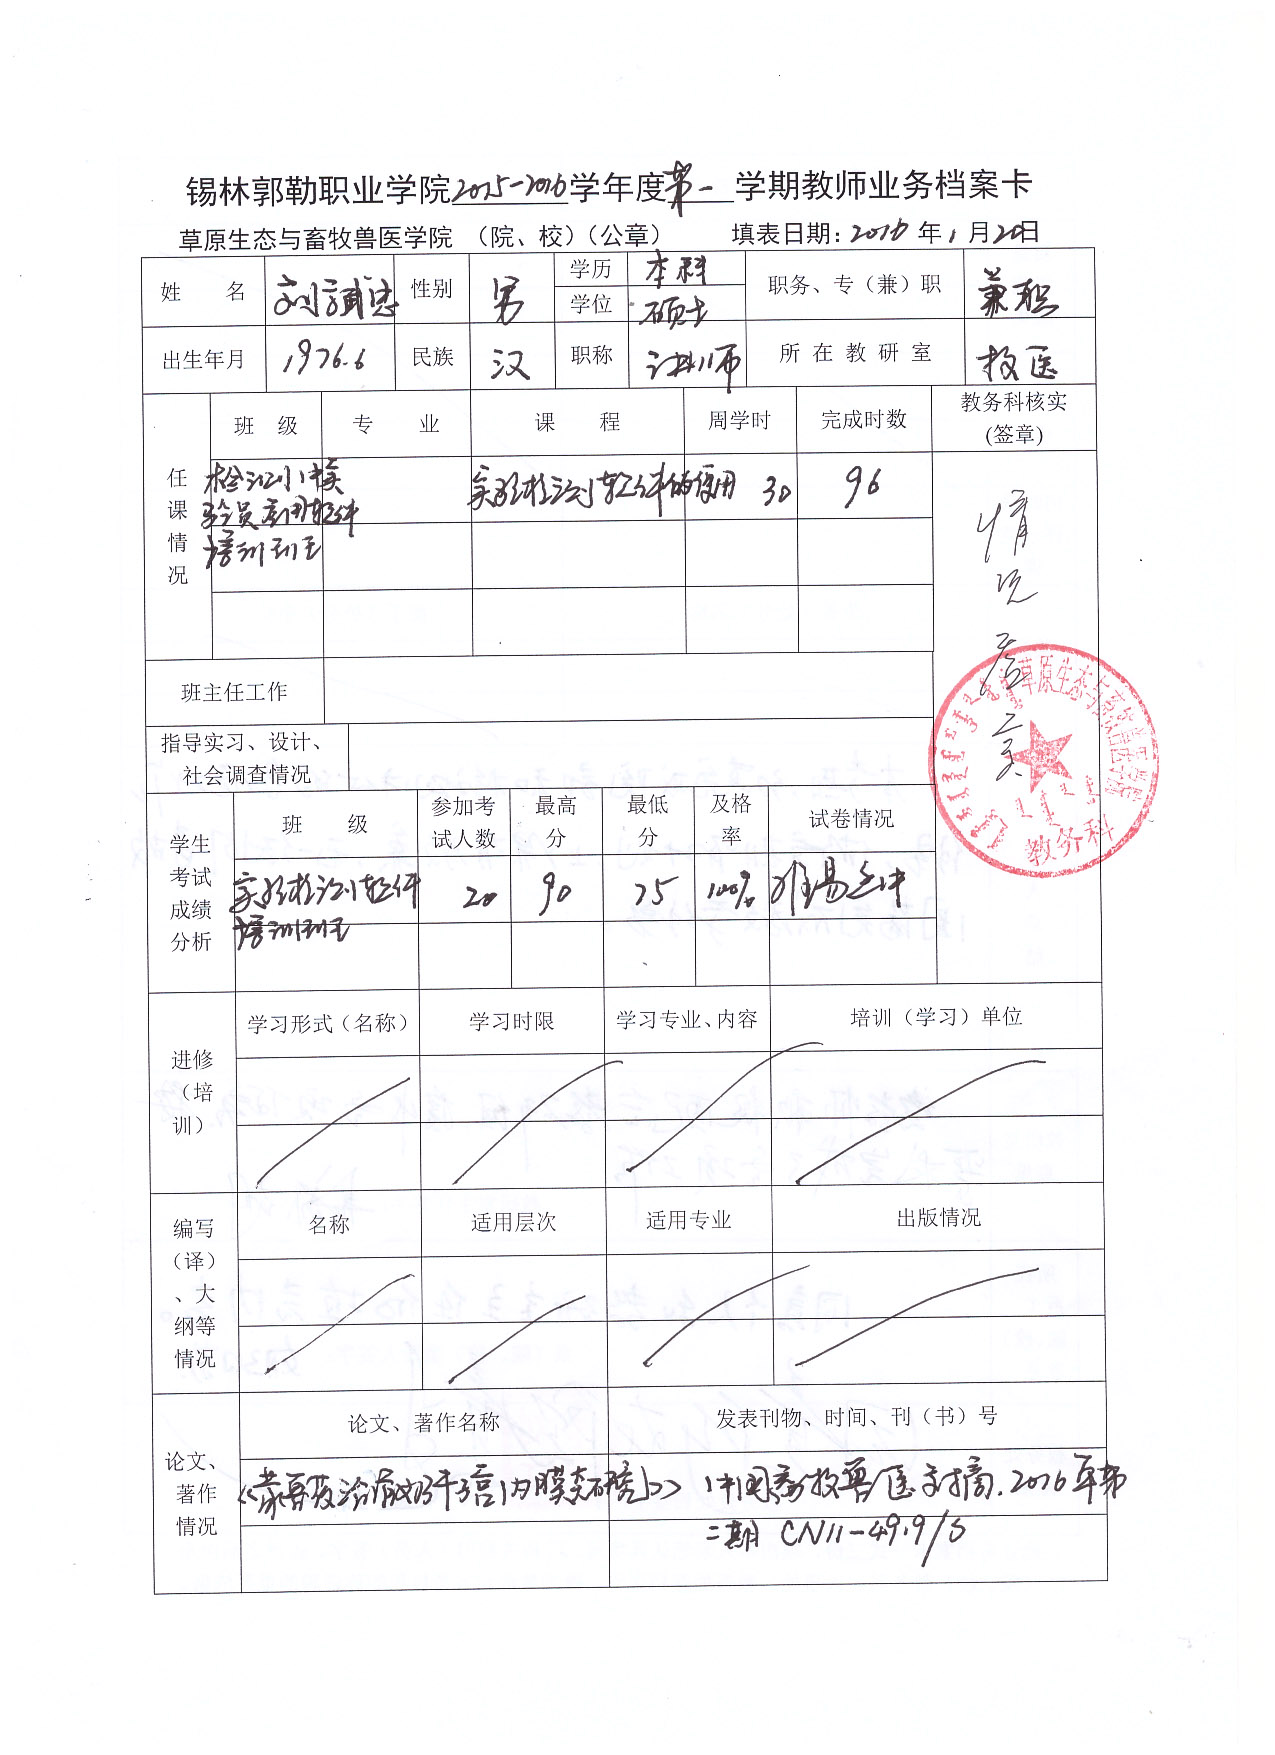 锡林郭勒职业学院2015-2016学年度第一学期教师业务档案卡
草原生态与畜牧兽医学院 （院、校）（公章） 填表日期：2016年1月20日
姓 名 性别 男 学历 本科 职务、专（兼）职 兼职
学位 硕士
出生年月 1976.6 民族 汉 职称 所在教研室 牧医
任课情况 班 级 专 业 课 程 周学时 完成时数 教务科核实(签章)
实验检测软件的使用 30 96
验员应用软件
培训班
情况属实
班主任工作
指导实习、设计、社会调查情况
学生考试成绩分析 班 级 参加考试人数 最高分 最低分 及格率 试卷情况
实验检测软件 20 90 75 100% 难易适中
培训班
草原生态与畜牧兽医学院
教务科
进修（培训） 学习形式（名称） 学习时限 学习专业、内容 培训（学习）单位
编写（译）、大纲等情况 名称 适用层次 适用专业 出版情况
论文、著作情况 论文、著作名称 发表刊物、时间、刊（书）号
中国畜牧兽医文摘.2016年第
二期 CN11-4919/S